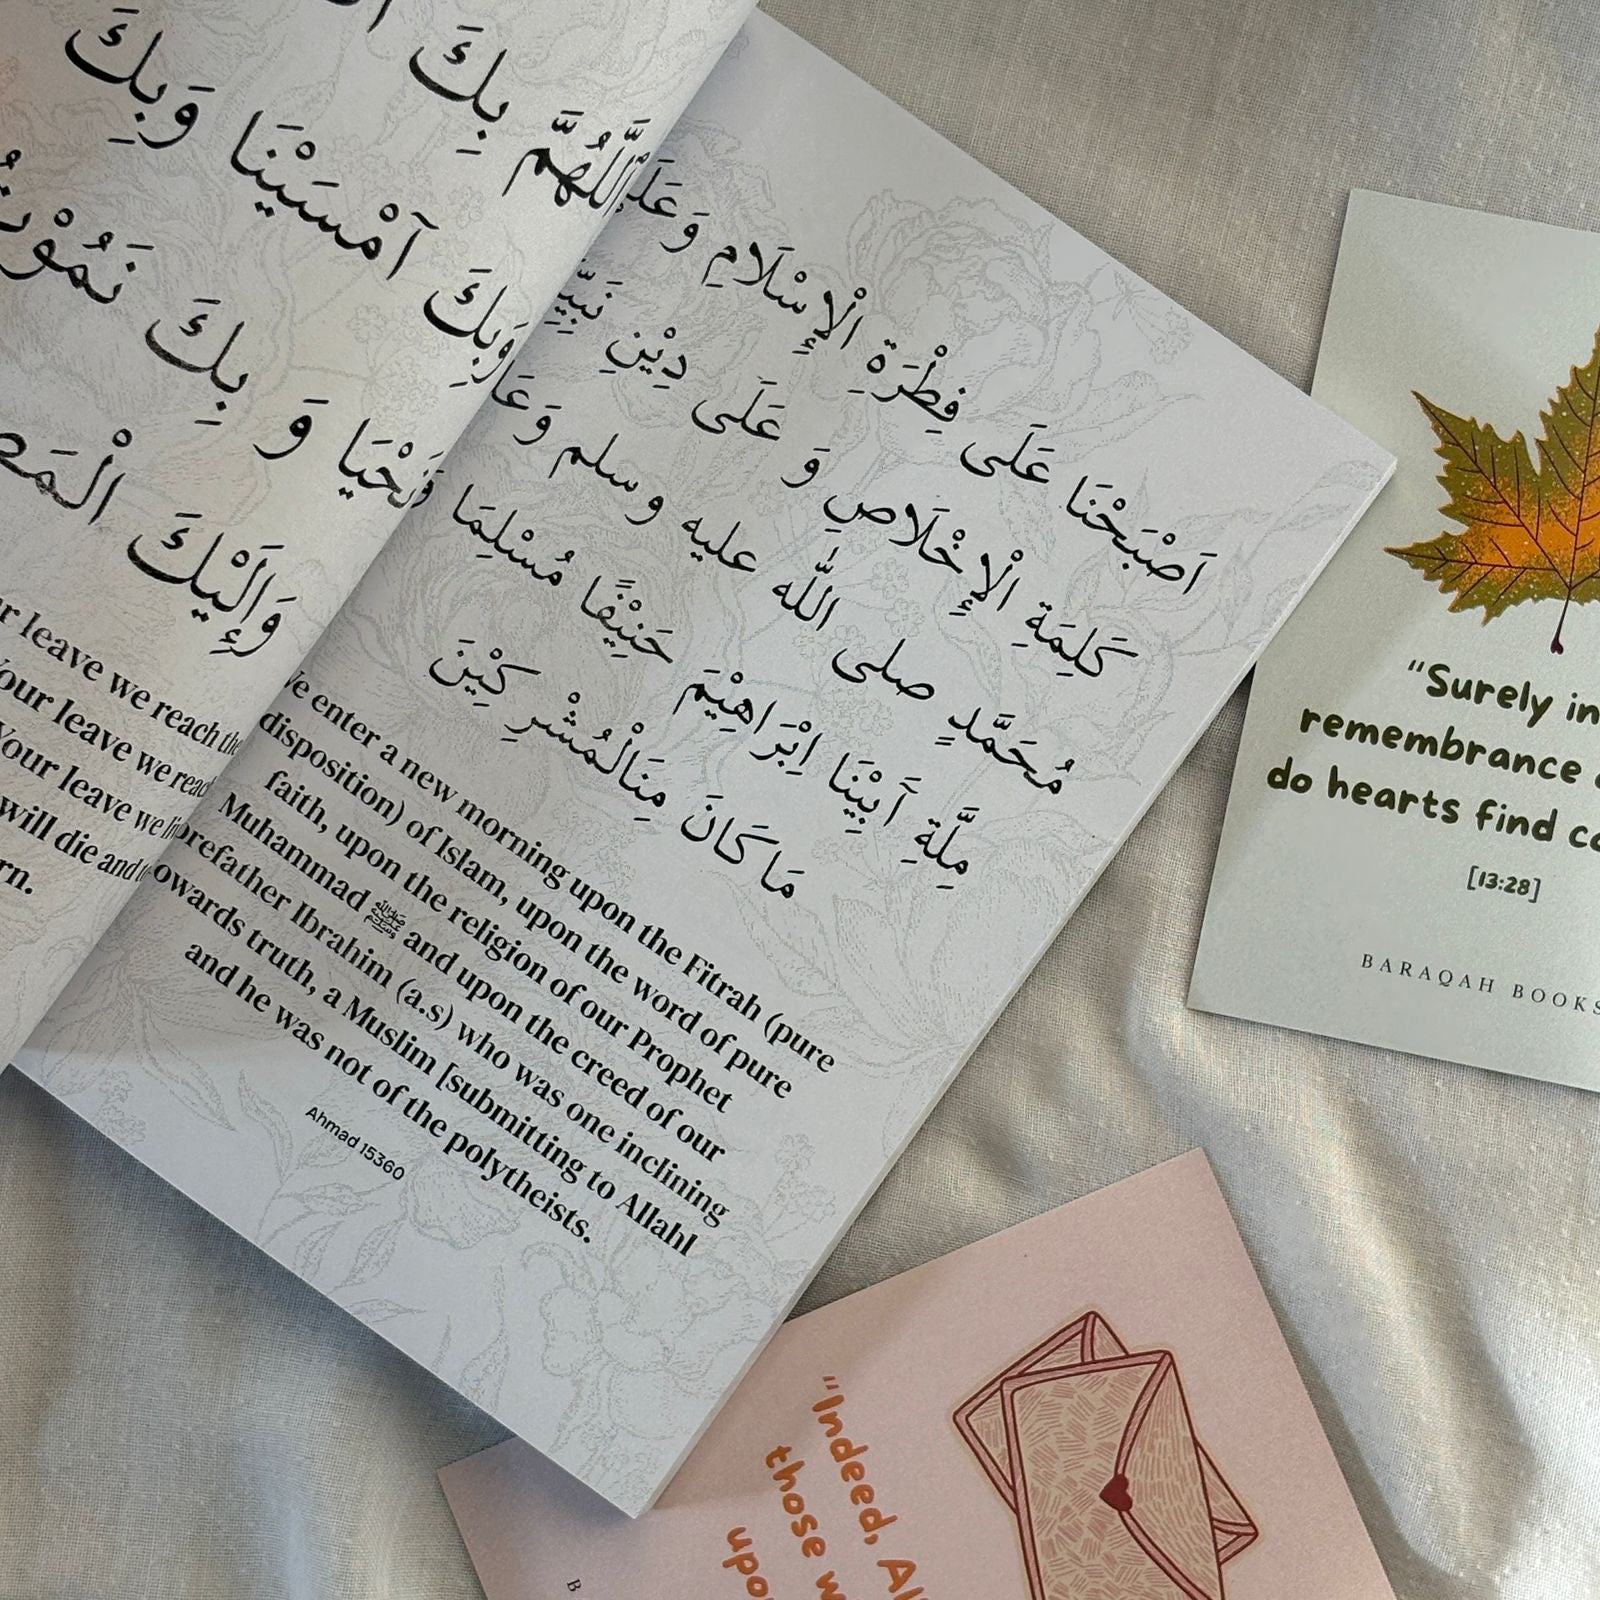 بِكَ
اَللَّهُمَّ بِكَ
وَبِكَ آمْسَيْنَا وَبِكَ
نَحْيَا وَ بِكَ نَمُوْتُ
وَإِلَيْكَ
leave we reach the
Your leave we
Your leave we
will die and
اَصْبَحْنَا عَلَى فِطْرَةِ الْإِسْلَامِ
كَلِمَةِ الْإِخْلَاصِ وَ عَلَى دِيْنِ
مُحَمَّدٍ صلى الله عليه وسلم
مِلَّةِ آَبِيْنَا اِبْرَاهِيْمَ حَنِيْفًا مُسْلِمَا
مَا كَانَ مِنَالْمُشْرِ كِيْنَ
enter a new morning upon the Fitrah (pure
disposition) of Islam, upon the word of pure
faith, upon the religion of our Prophet
Muhammad ﷺ and upon the creed of our
Ibrahim (a.s) who was one inclining
truth, a Muslim [submitting to Allahl
and he was not of the polytheists.
Ahmad 15360
"Surely in
remembrance
do hearts find
[13:28]
BARAQAH BOOKS
"Indeed,
those